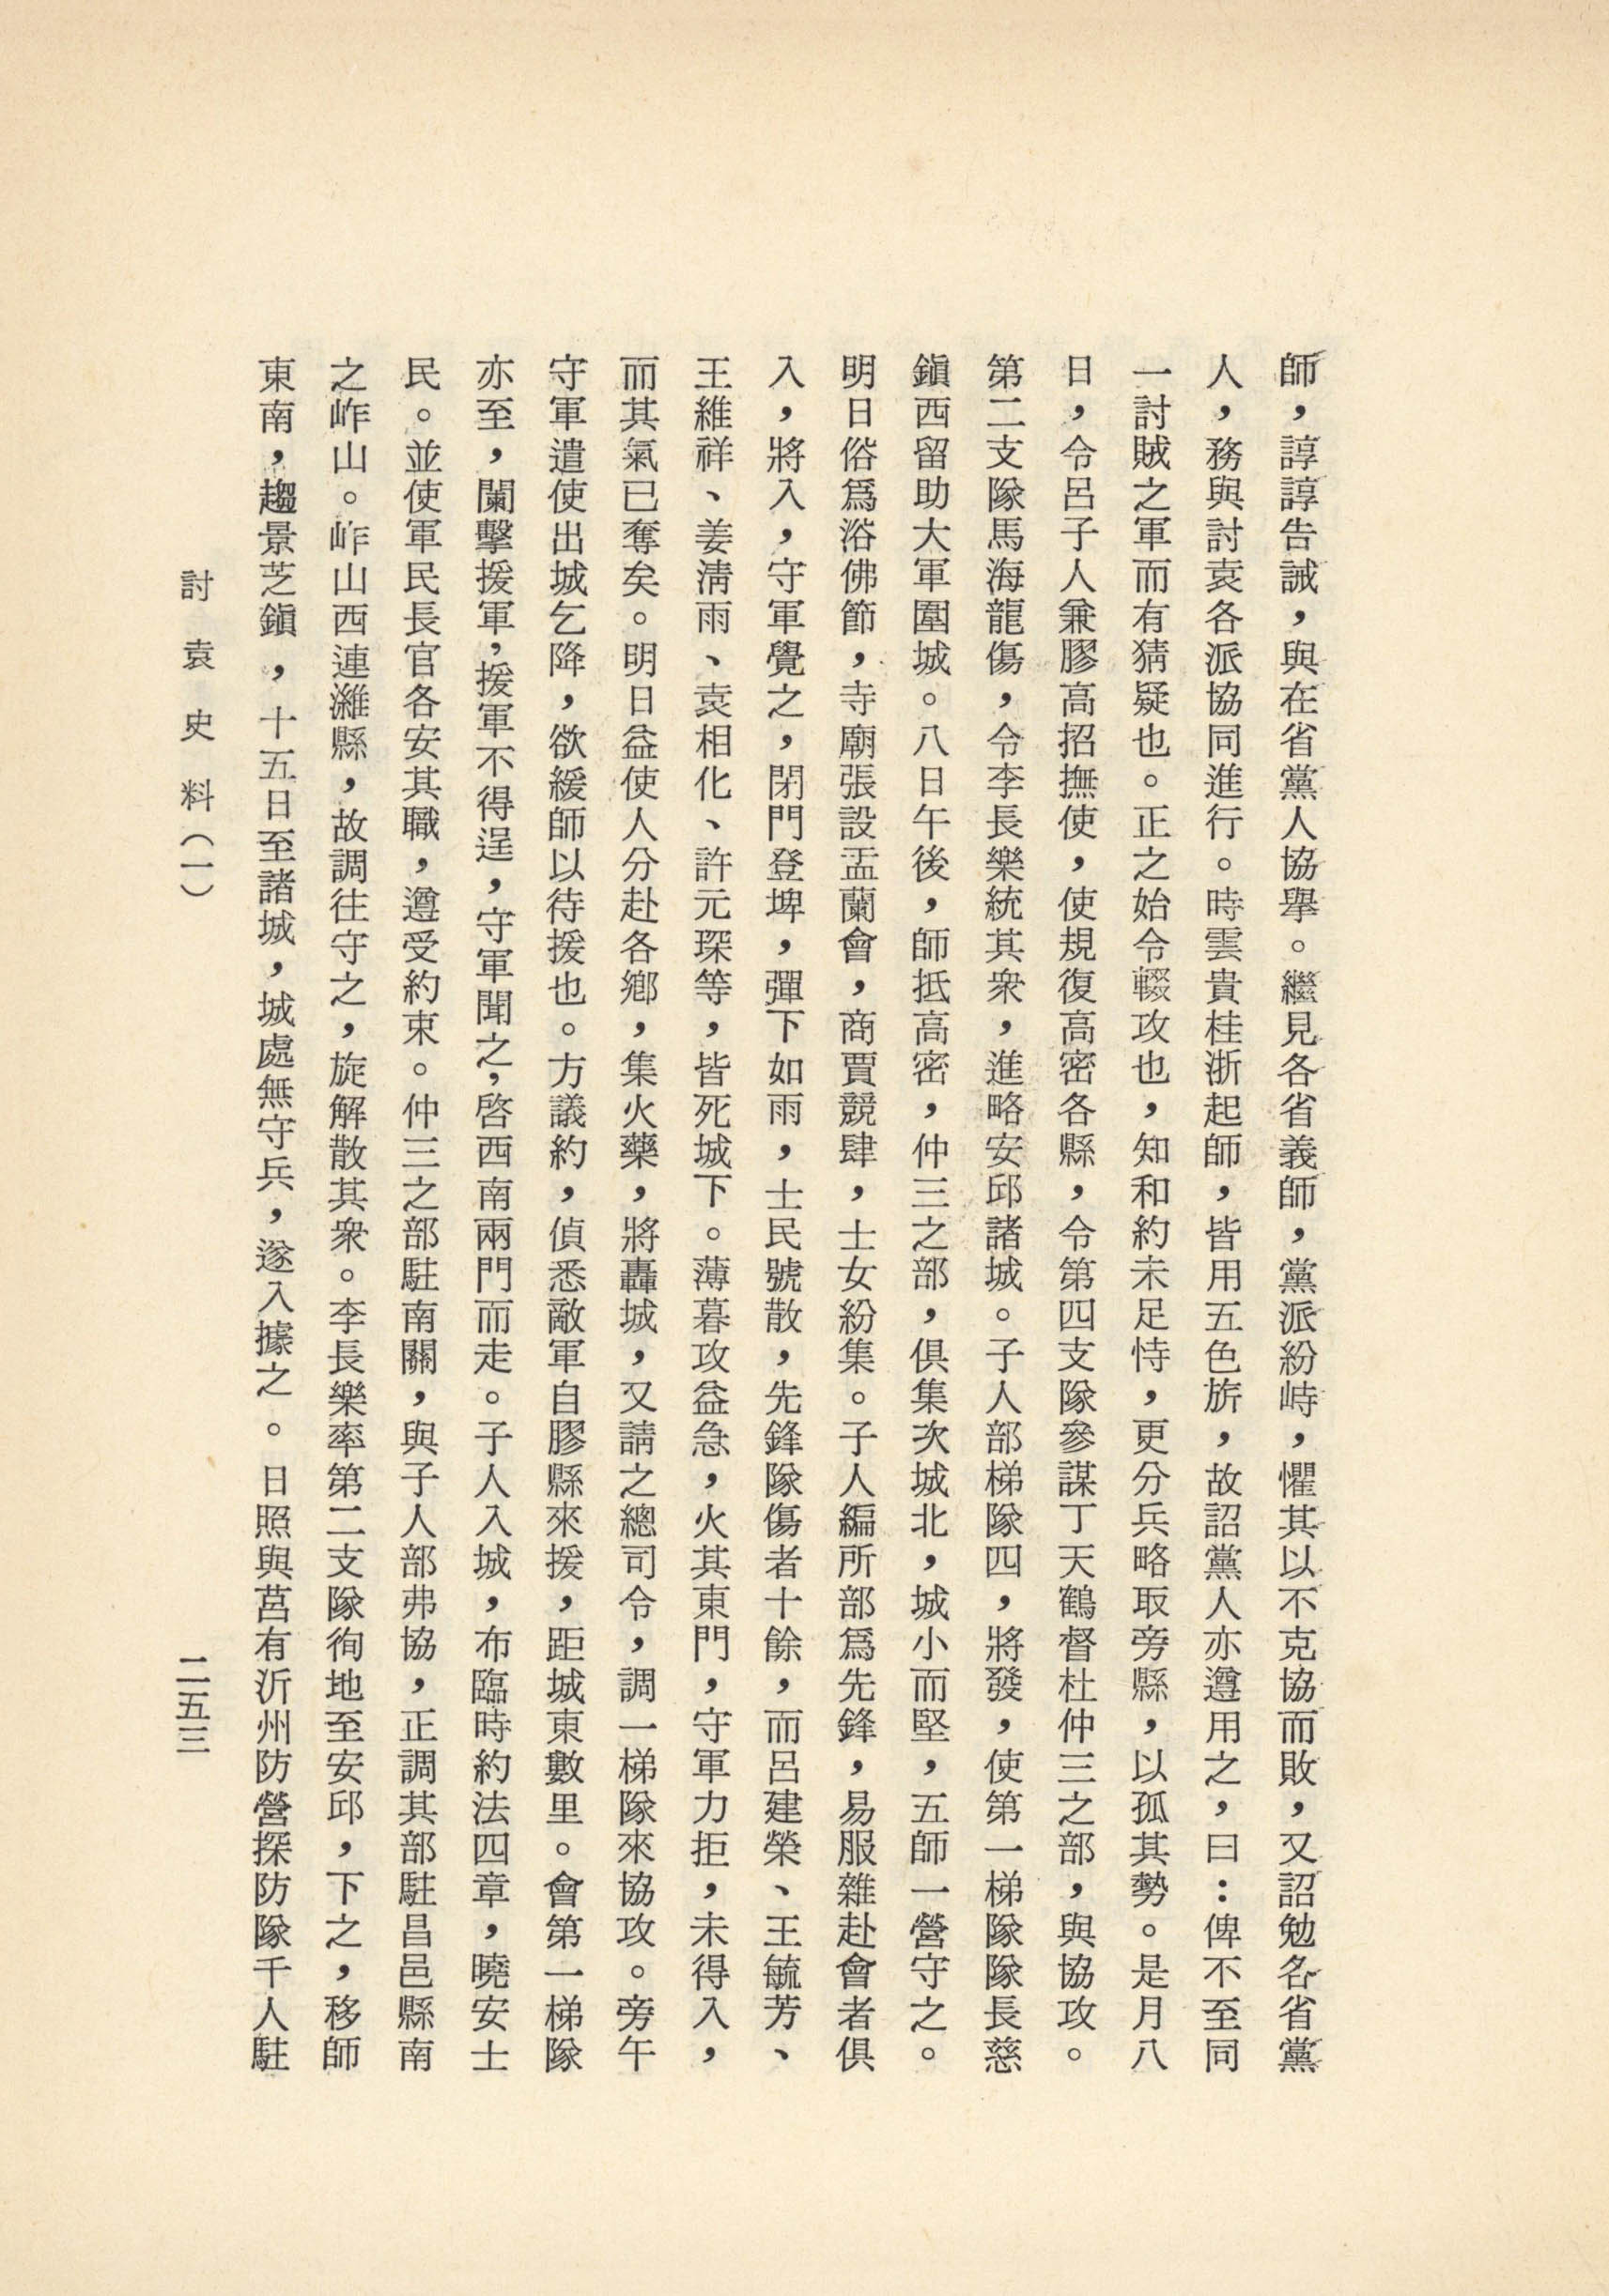 師，諄諄告誡，與在省黨人協舉。繼見各省義師，黨派紛峙，懼其以不克協而敗，又詔勉各省黨
人，務與討袁各派協同進行。時雲貴桂浙起師，皆用五色旂，故詔黨人亦遵用之，曰：俾不至同
一討賊之軍而有猜疑也。正之始令輟攻也，知和約未足恃，更分兵略取旁縣，以孤其勢。是月八
日，令呂子人兼膠高招撫使，使規復高密各縣，令第四支隊參謀丁天鶴督杜仲三之部，與協攻。
第二支隊馬海龍傷，令李長樂統其衆，進略安邱諸城。子人部梯隊四，將發，使第一梯隊隊長慈
鎭西留助大軍圍城。八日午後，師抵高密，仲三之部，俱集次城北，城小而堅，五師一營守之。
明日俗爲浴佛節，寺廟張設盂蘭會，商賈競肆，士女紛集。子人編所部爲先鋒，易服雜赴會者俱
入，將入，守軍覺之，閉門登埤，彈下如雨，士民號散，先鋒隊傷者十餘，而呂建榮、王毓芳、
王維祥、姜淸雨、袁相化、許元琛等，皆死城下。薄暮攻益急，火其東門，守軍力拒，未得入，
而其氣已奪矣。明日益使人分赴各鄕，集火藥，將轟城，又請之總司令，調一梯隊來協攻。旁午
守軍遣使出城乞降，欲緩師以待援也。方議約，偵悉敵軍自膠縣來援，距城東數里。會第一梯隊
亦至，闌擊援軍，援軍不得逞，守軍聞之，啓西南兩門而走。子人入城，布臨時約法四章，曉安士
民。並使軍民長官各安其職，遵受約束。仲三之部駐南關，與子人部弗協，正調其部駐昌邑縣南
之岞山。岞山西連濰縣，故調往守之，旋解散其衆。李長樂率第二支隊徇地至安邱，下之，移師
東南，趨景芝鎭，十五日至諸城，城處無守兵，遂入據之。日照與莒有沂州防營探防隊千人駐
討袁史料（一）
二五三